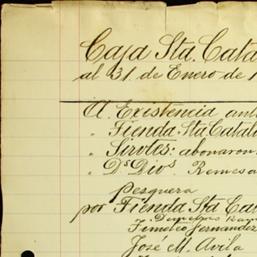 Caja Sta. Cata
al 31 de Enero de 1
A Existencia ant
" Tienda Sta Catal
" Siroles: abonaron
" Ds. Dios. Remesa
pesquera
por Tienda Sta Ca
José M. Avila